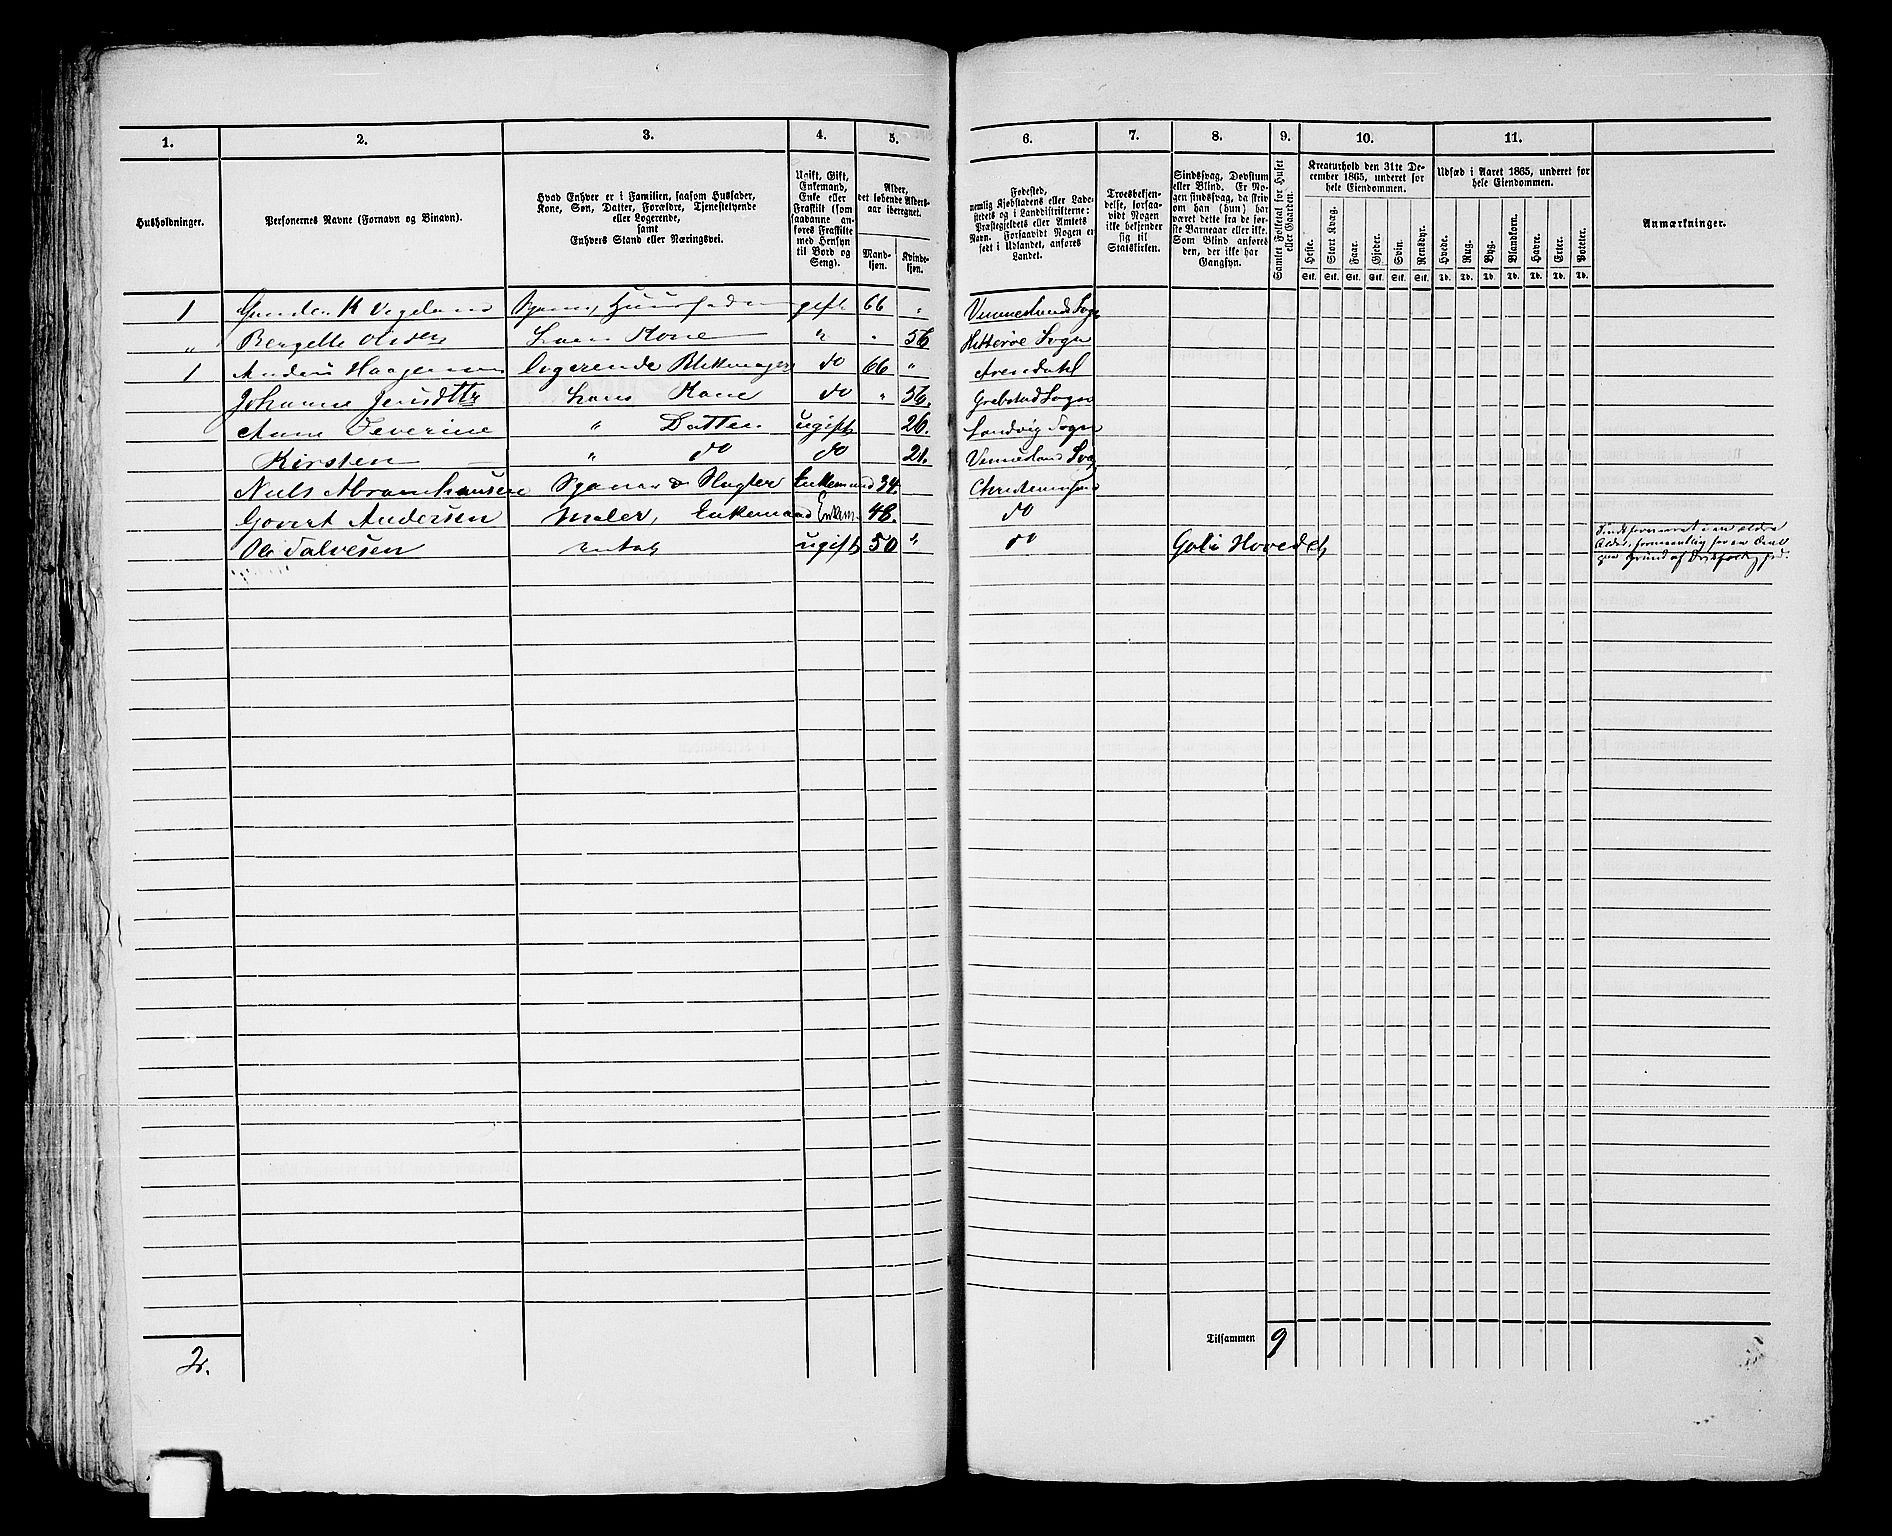 1. 2. 3. 4. 5. 6. 7. 8. 9. 10. 11.
Husholdninger.
Personernes Navne (Fornavn og Binavn).
Hvad Enhver er i Familien, saasom Husfader,
Kone, Søn, Datter, Forældre, Tjenestetyende
eller Logerende,
samt
Enhvers Stand eller Næringsvei.
Ugift, Gift,
Enkemand,
Enke eller
Fraskilt (som
saadanne an-
føres Fraskilte
med Hensyn
til Bord og
Seng).
Alder,
det løbende Alders-
aar iberegnet.
Mand-
kjøn.
Kvinde-
kjøn.
Fødested,
nemlig Kjøbstadens eller Lade-
stedets og i Landdistrikterne:
Præstegjeldets eller Amtets
Navn. Forsaavidt Nogen er
født i Udlandet, anføres
Landet.
Troesbekjen-
delse, forsaa-
vidt Nogen
ikke bekjender
sig til
Statskirken.
Sindssvag, Døvstum
eller Blind. Er No-
gen sindssvag, da skriv
om han (hun) har
været dette fra de før-
ste Barneaar eller ikke.
Som Blind anføres
den, der ikke har
Gangsyn.
Samlet Folketal for Huset
eller Gaarden.
Kreaturhold den 31te De-
cember 1865, underet for
hele Eiendommen.
Heste. Stort Kvæg. Faar. Gjeder. Svin. Rensdyr.
Stk. Stk. Stk. Stk. Stk. Stk.
Udsæd i Aaret 1865, underet for
hele Eiendommen.
Hvede. Rug. Byg. Blandkorn. Havre. Erter. Poteter.
Td. Td. Td. Td. Td. Td. Td.
Anmærkninger.
1 K Vegeland gift 66 " Vennesland Sogn
" Bergette Olsen hans Kone " " 56 Hitterøe Sogn
1 Anders Haagensen logerende do 66 " Arendahl
Johanne hans Kone do " 56. Sogn
Severine " Datter ugift 26. Landvig Sogn
Kirsten " do do 21. Vennesland Sog
Niels Abramhausen & Slagter Enkemand 34. Christiansand
Govert Andersen Maler, Enkemand Enkem. 48. do
Ole Salvesen ugift 50 " do
Tilsammen 9
2.